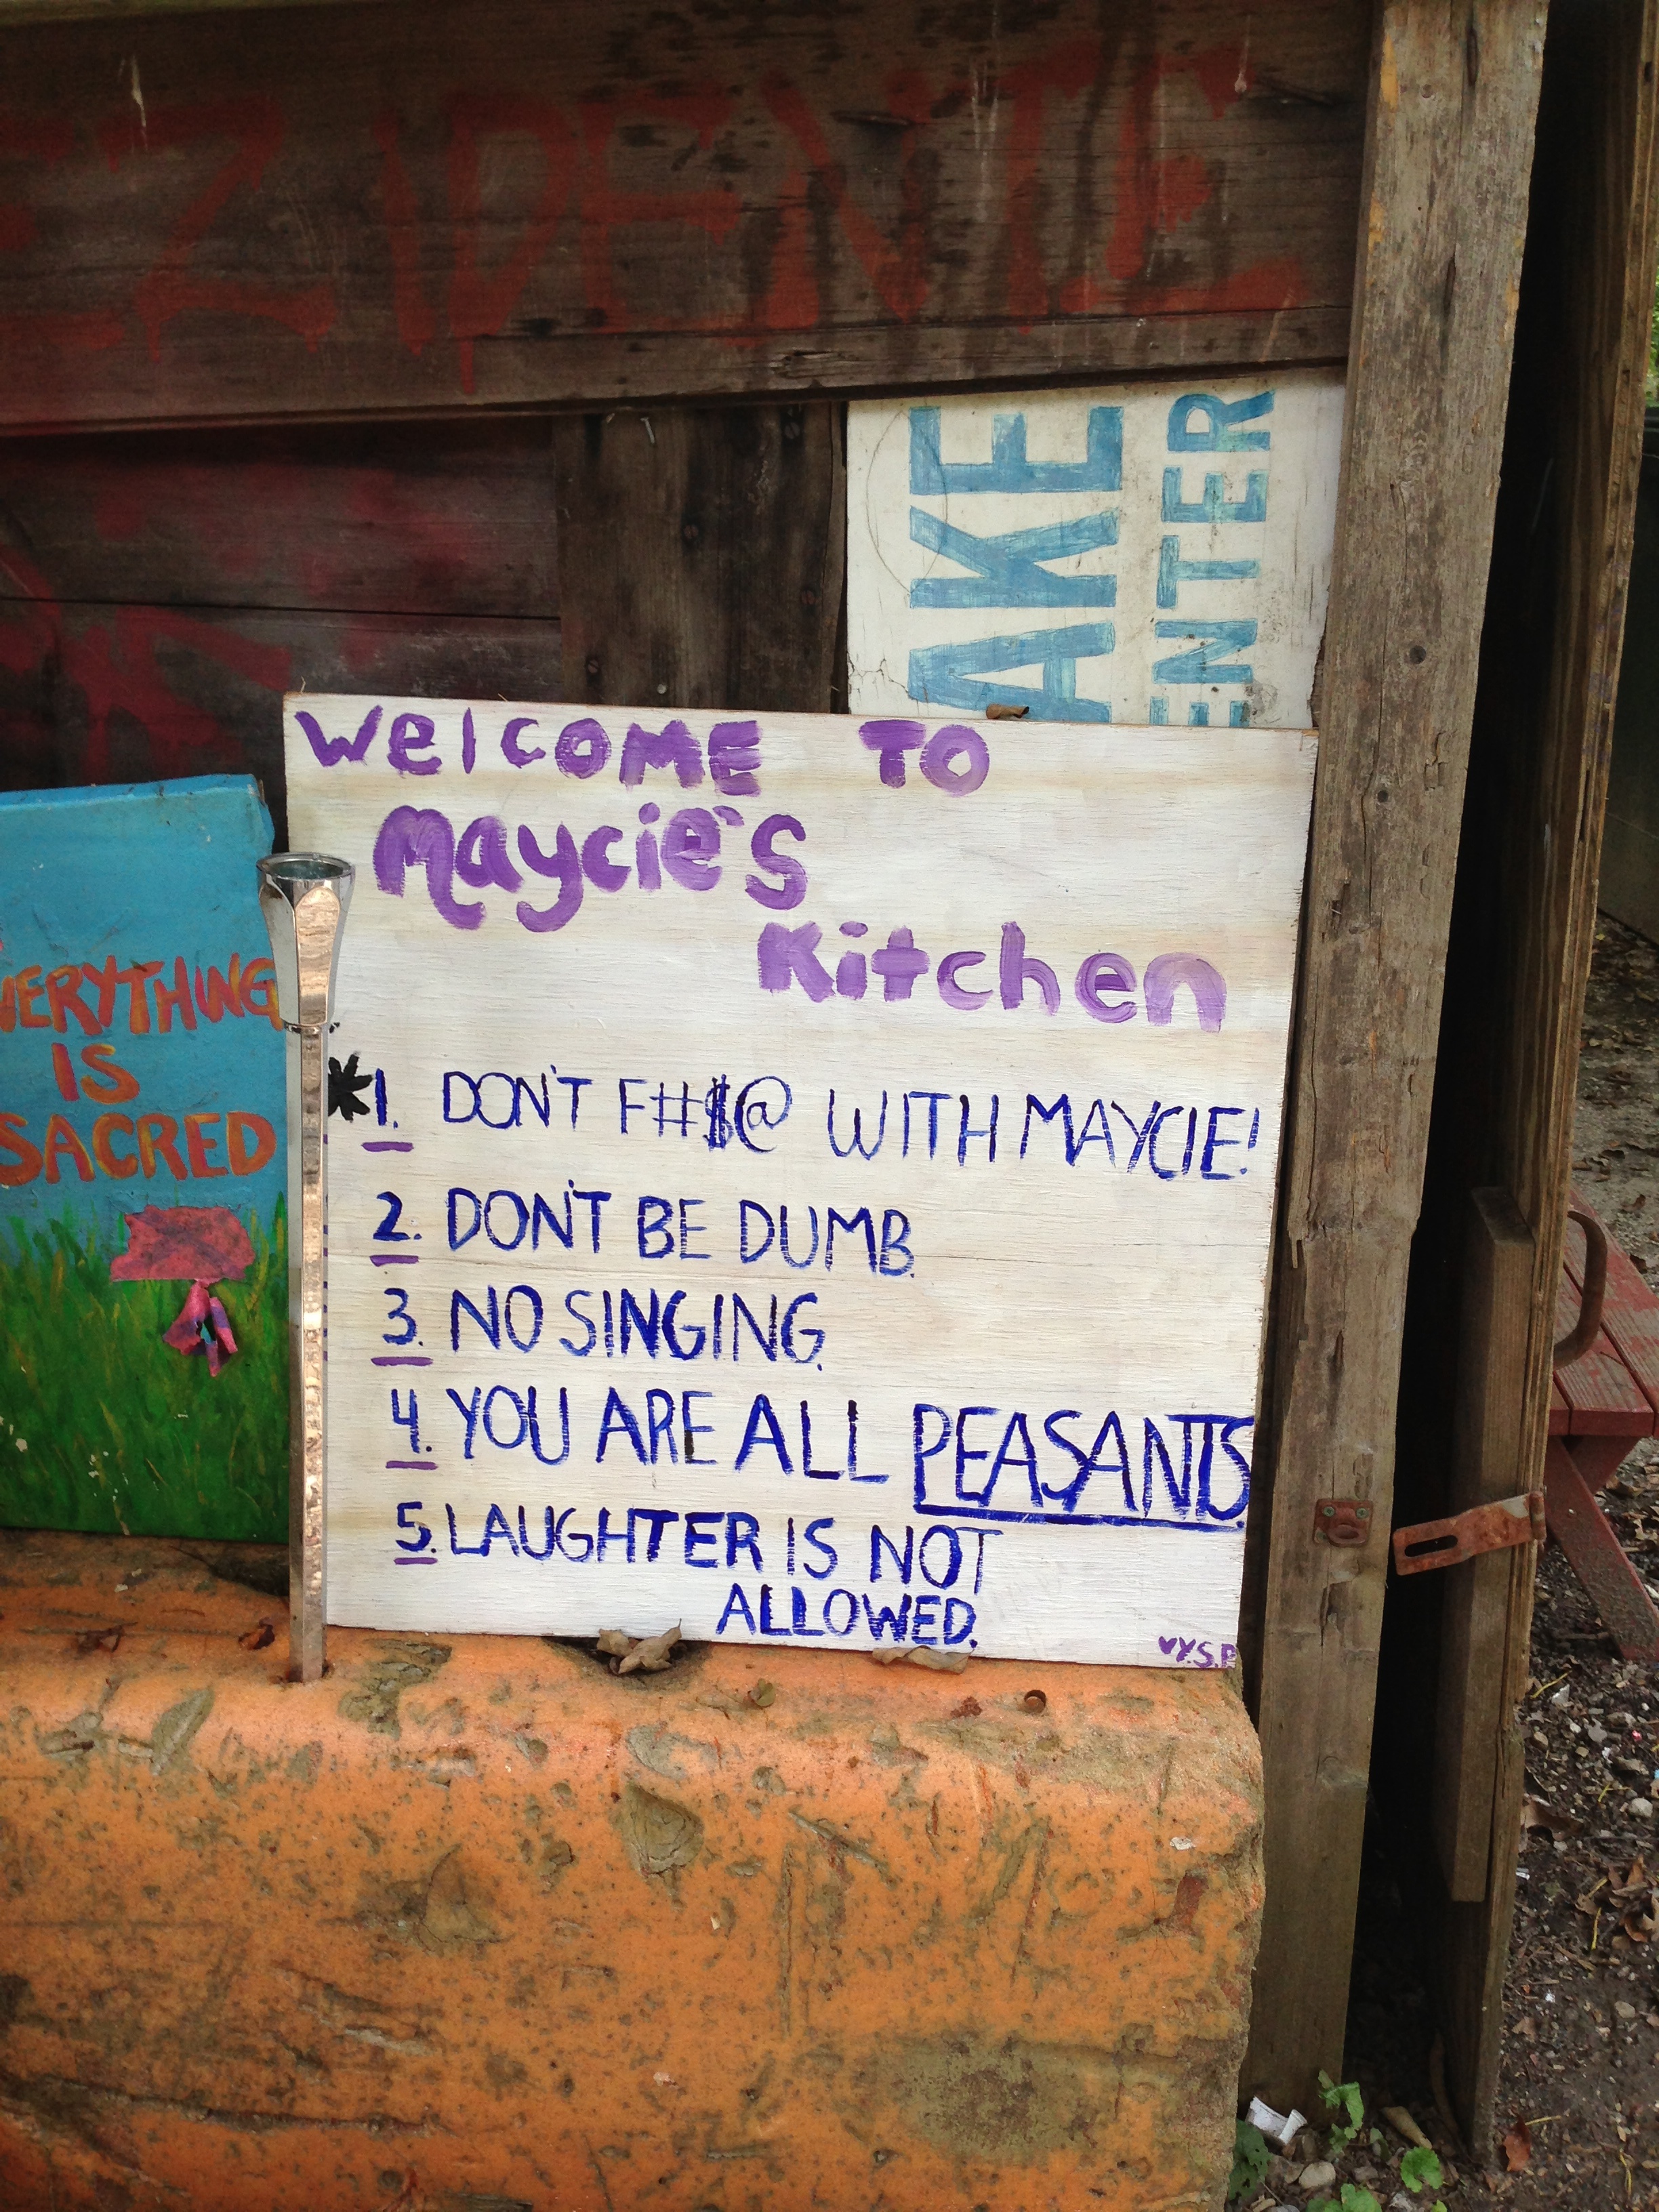 EZIDENTE
AKE
ENTER
Welcome TO
Maycie's
Kitchen
*1. DON'T F#$@ WITH MAYCIE!
2. DON'T BE DUMB.
3. NO SINGING.
4. YOU ARE ALL PEASANTS.
5. LAUGHTER IS NOT
ALLOWED.
♥Y.S.P.
VERYTHING
IS
SACRED